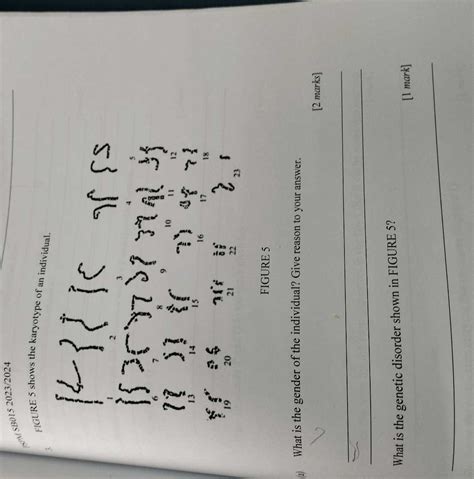 SB015 2023/2024
3.
FIGURE 5 shows the karyotype of an individual.
1 2 3 4 5
6 7 8 9 10 11 12
13 14 15 16 17 18
19 20 21 22 23
FIGURE 5
(a)
What is the gender of the individual? Give reason to your answer.
[2 marks]
What is the genetic disorder shown in FIGURE 5?
[1 mark]